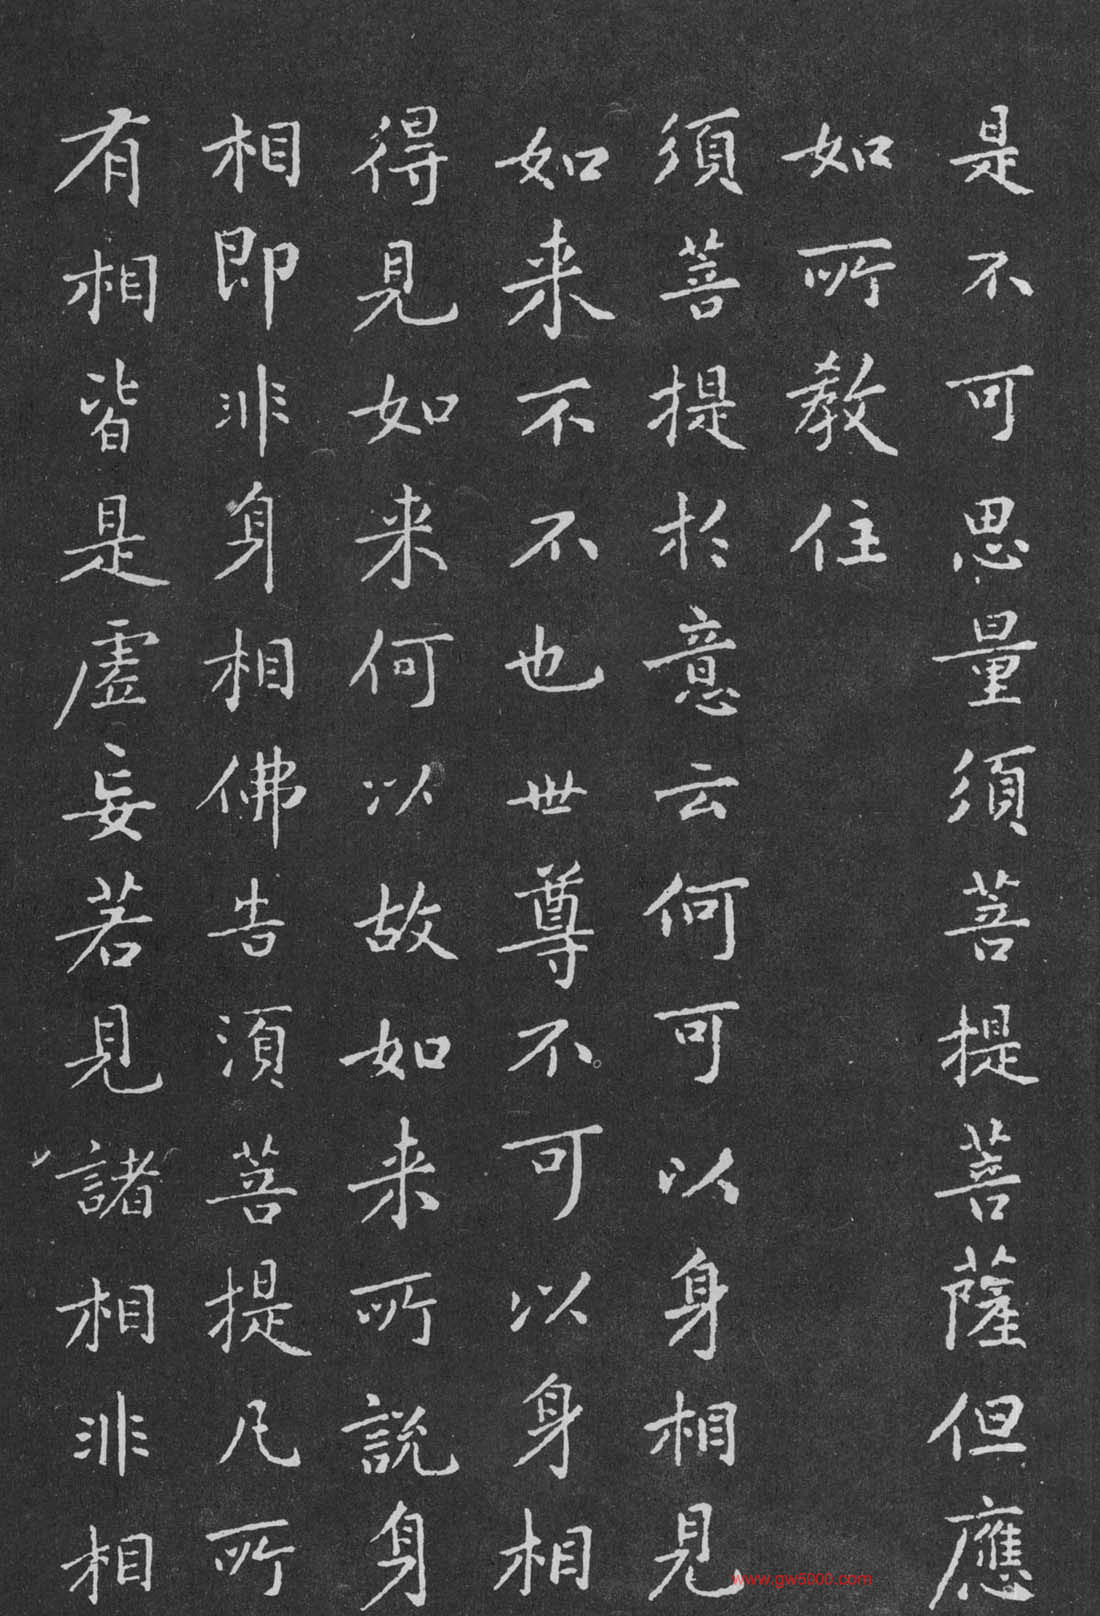 是不可思量須菩提菩薩但應
如所教住
須菩提於意云何可以身相見
如来不不也世尊不可以身相
得見如来何以故如来所說身
相即非身相佛告須菩提凡所
有相皆是虛妄若見諸相非相
www.gw5900.com